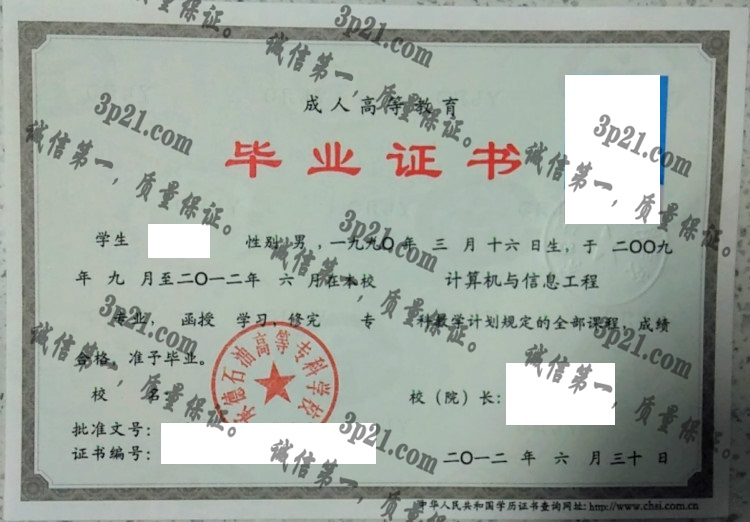 成人高等教育
毕业证书
学生 性别 男，一九九〇年 三 月 十六 日生，于 二〇〇九
年 九 月至二〇一二年 六 月在本校 计算机与信息工程
专业， 函授 学习，修完 专 科教学计划规定的全部课程，成绩
合格，准予毕业。
校 名 校（院）长：
承德石油高等专科学校
批准文号：
证书编号： 二〇一二 年 六 月 三十 日
中华人民共和国学历证书查询网址：http://www.chsi.com.cn
3p21.com
诚信第一，质量保证。
3p21.com
诚信第一，质量保证。
3p21.com
诚信第一，质量保证。
3p21.com
诚信第一，质量保证。
3p21.com
诚信第一，质量保证。
3p21.com
诚信第一，质量保证。
3p21.com
诚信第一，质量保证。
3p21.com
诚信第一，质量保证。